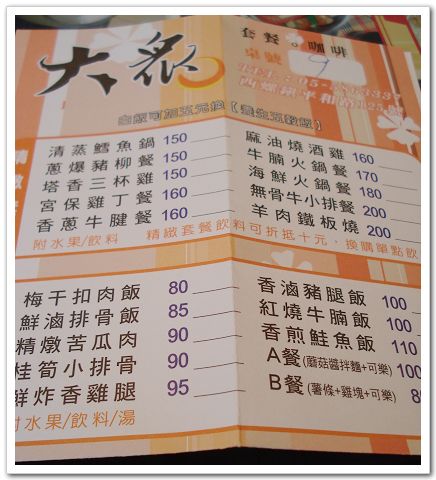 大眾
套餐。咖啡
桌號 9
西螺鎮平和路125號
白飯可加五元換【養生五穀飯】
清蒸鱈魚鍋 150
蔥爆豬柳餐 150
塔香三杯雞 150
宮保雞丁餐 160
香蔥牛腱餐 160
麻油燒酒雞 160
牛腩火鍋餐 170
海鮮火鍋餐 180
無骨牛小排餐 200
羊肉鐵板燒 200
附水果/飲料 精緻套餐飲料可折抵十元,換購單點飲
梅干扣肉飯 80
鮮滷排骨飯 85
精燉苦瓜肉 90
桂筍小排骨 90
鮮炸香雞腿 95
附水果/飲料/湯
香滷豬腿飯 100
紅燒牛腩飯 100
香煎鮭魚飯 110
A餐(蘑菇醬拌麵+可樂) 100
B餐(薯條+雞塊+可樂)